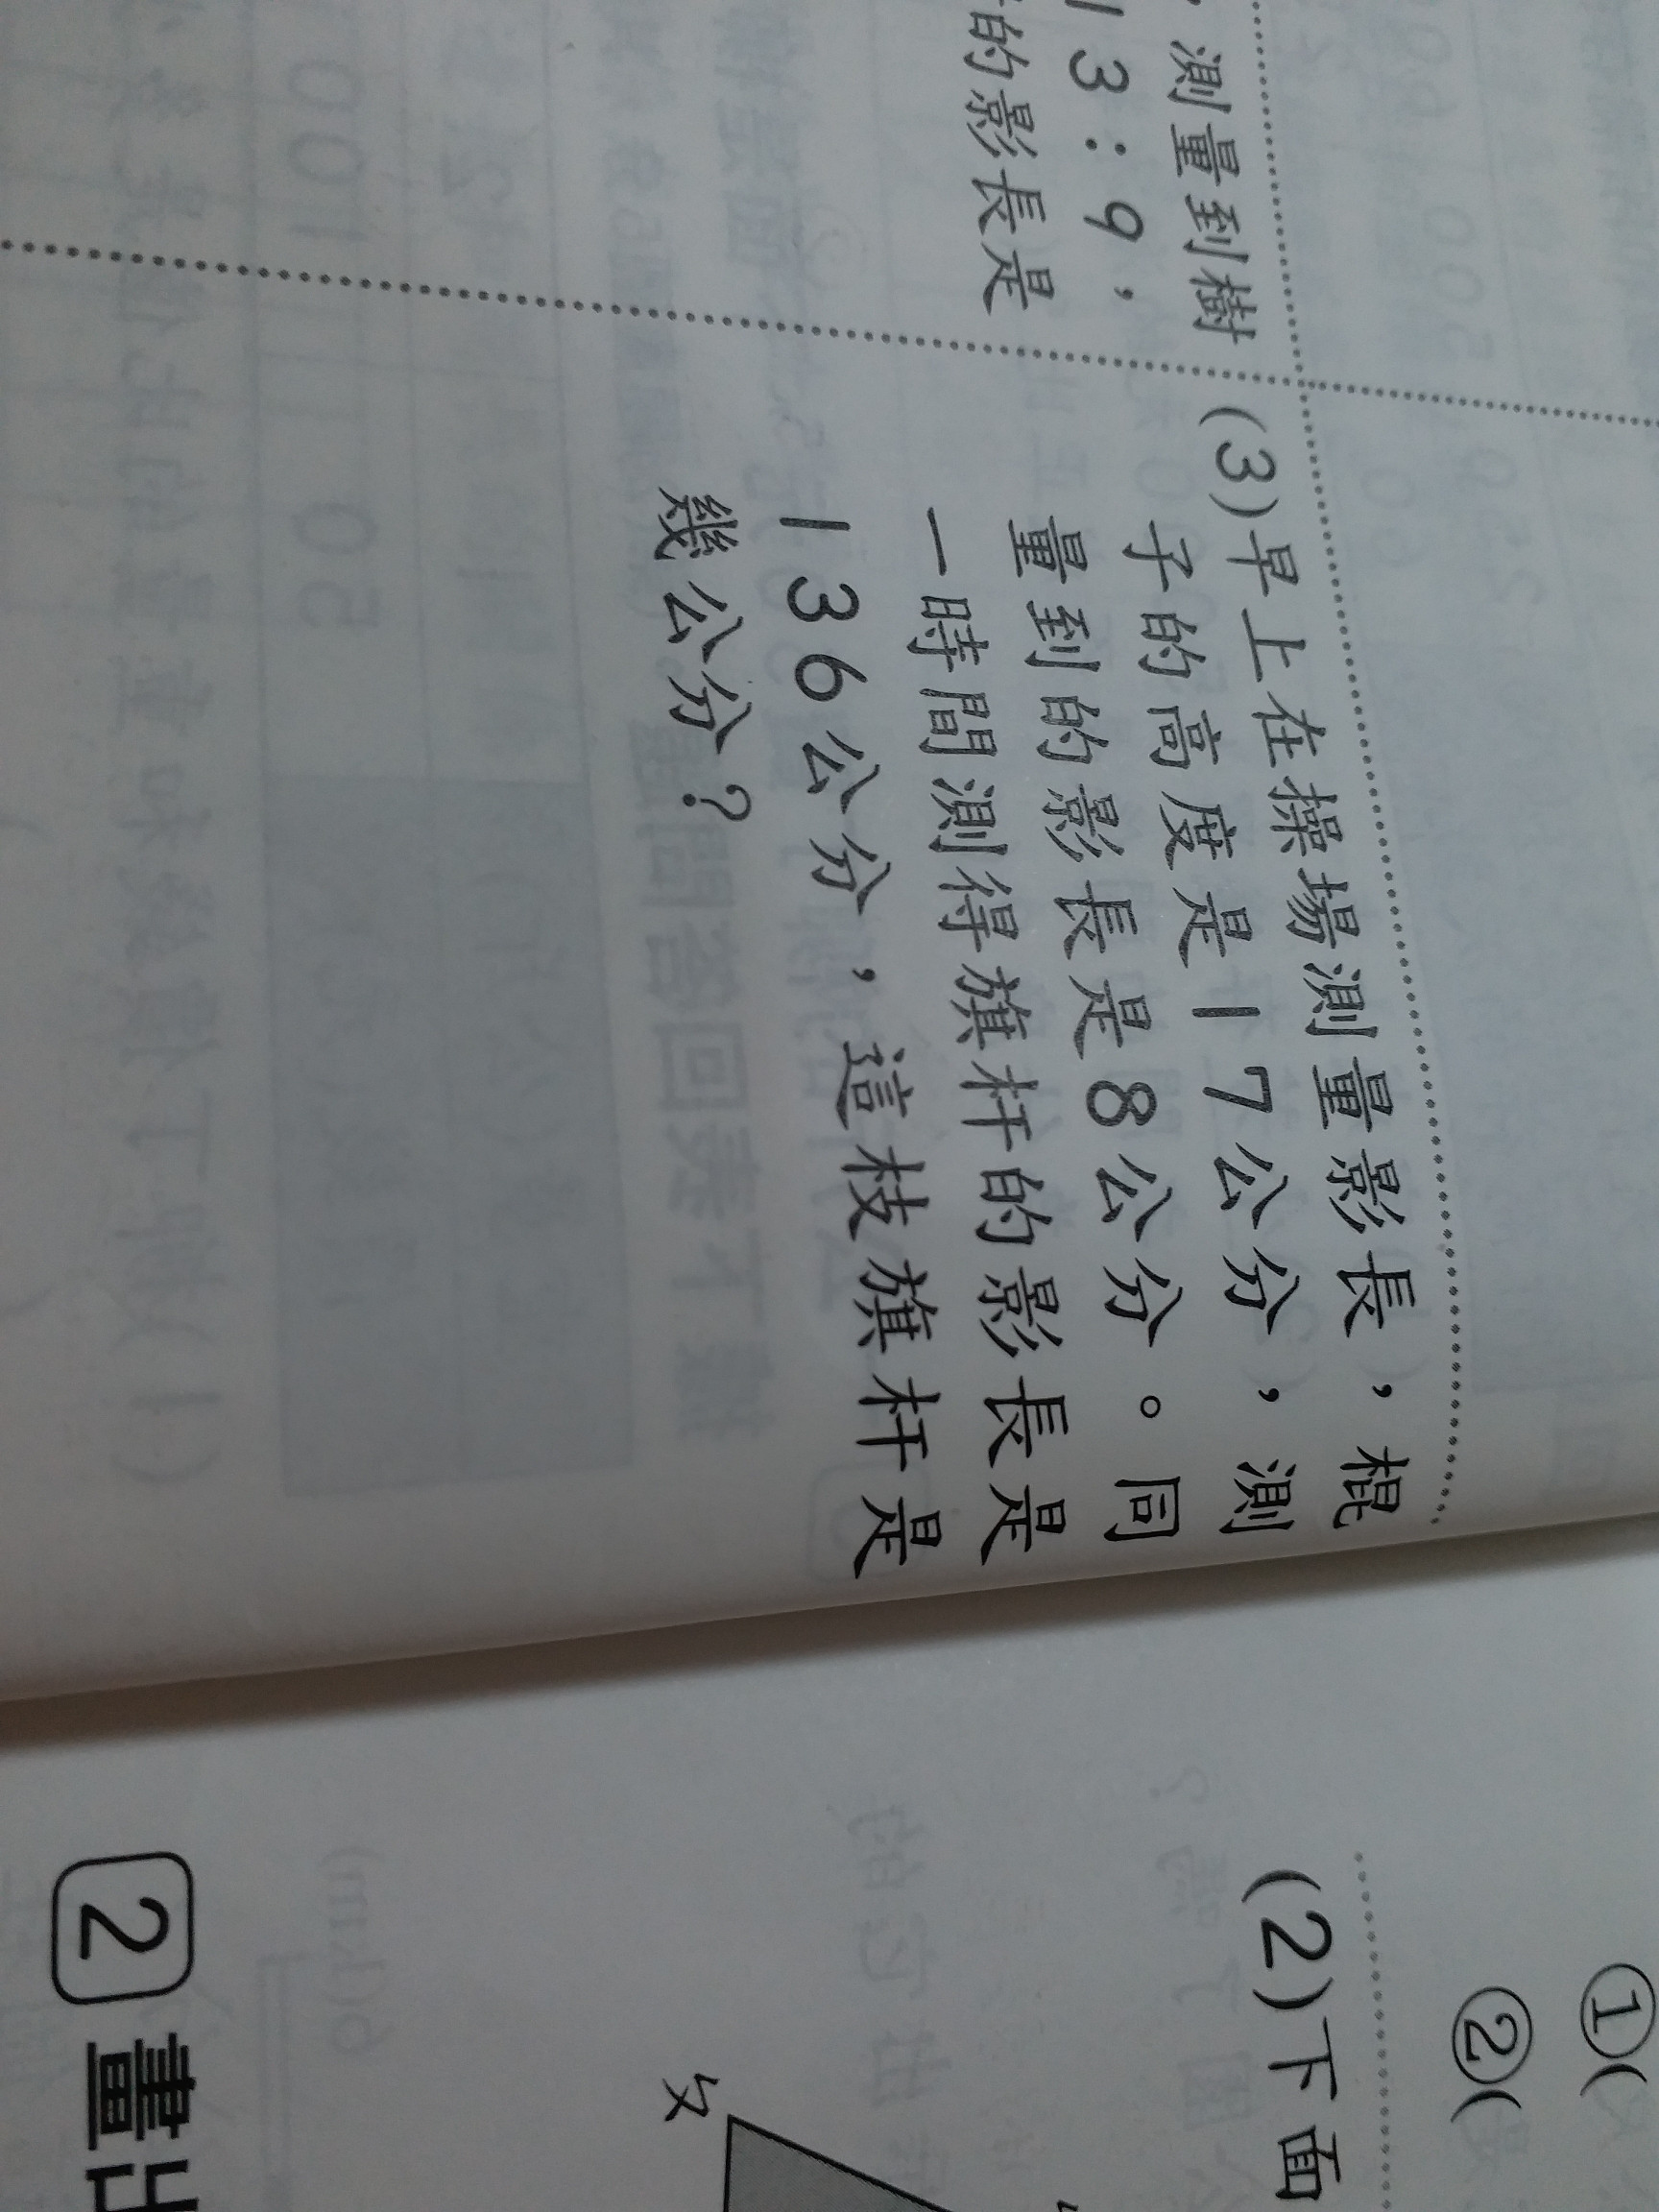 ，測量到樹
13：9，
的影長是
(3)早上在操場測量影長，棍
子的高度是17公分，測
量到的影長是8公分。同
一時間測得旗杆的影長是
136公分，這枝旗杆是
幾公分？
①(
②(
(2)下面
ㄆ
2 畫出